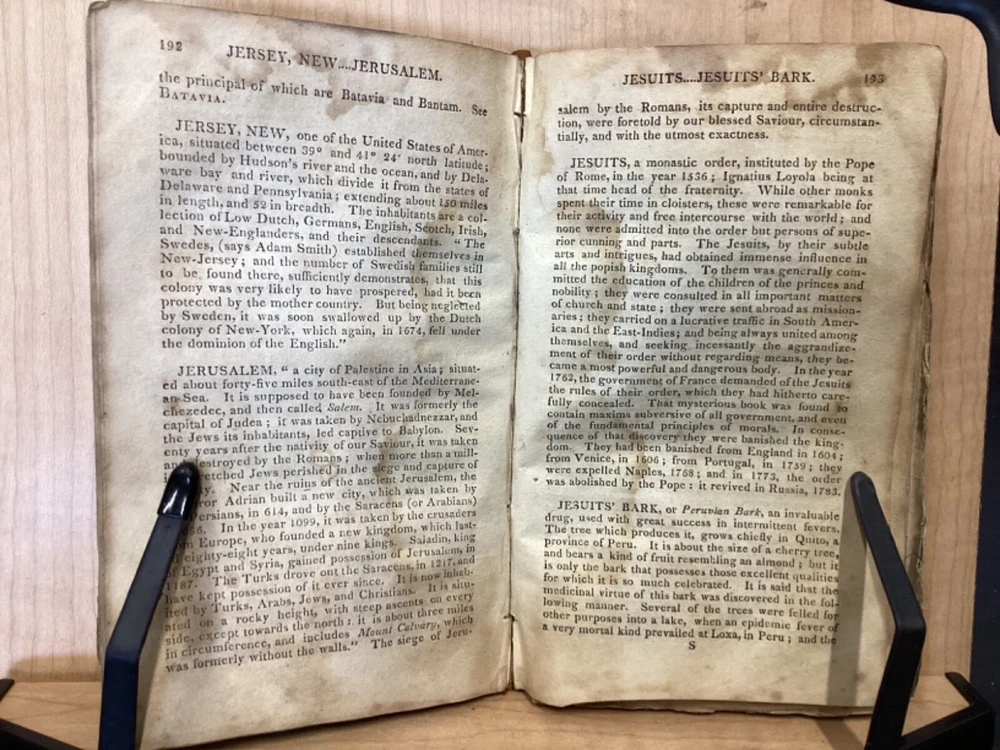 192
JERSEY, NEW....JERUSALEM.
the principal of which are Batavia and Bantam. See
BATAVIA.
JERSEY, NEW, one of the United States of Amer-
ica, situated between 39° and 41° 24′ north latitude;
bounded by Hudson's river and the ocean, and by Dela-
ware bay and river, which divide it from the states of
Delaware and Pennsylvania; extending about 150 miles
in length, and 52 in breadth. The inhabitants are a col-
lection of Low Dutch, Germans, English, Scotch, Irish,
and New-Englanders, and their descendants. "The
Swedes, (says Adam Smith) established themselves in
New-Jersey; and the number of Swedish families still
to be found there, sufficiently demonstrates, that this
colony was very likely to have prospered, had it been
protected by the mother country. But being neglected
by Sweden, it was soon swallowed up by the Dutch
colony of New-York, which again, in 1674, fell under
the dominion of the English."
JERUSALEM, "a city of Palestine in Asia; situat-
ed about forty-five miles south-east of the Mediterrane-
an Sea. It is supposed to have been founded by Mel-
chezedec, and then called Salem. It was formerly the
capital of Judea; it was taken by Nebuchadnezzar, and
the Jews its inhabitants, led captive to Babylon. Sev-
enty years after the nativity of our Saviour, it was taken
and destroyed by the Romans; when more than a mill-
etched Jews perished in the siege and capture of
Near the ruins of the ancient Jerusalem, the
ror Adrian built a new city, which was taken by
Persians, in 614, and by the Saracens (or Arabians)
In the year 1099, it was taken by the crusaders
Europe, who founded a new kingdom, which last-
eighty-eight years, under nine kings. Saladin, king
of Egypt and Syria, gained possession of Jerusalem, in
1187. The Turks drove out the Saracens, in 1217, and
have kept possession of it ever since. It is now inhab-
ited by Turks, Arabs, Jews, and Christians. It is situ-
ated on a rocky height, with steep ascents on every
side, except towards the north: it is about three miles
in circumference, and includes Mount Calvary, which
was formerly without the walls." The siege of Jeru-
JESUITS....JESUITS' BARK.
193
salem by the Romans, its capture and entire destruc-
tion, were foretold by our blessed Saviour, circumstan-
tially, and with the utmost exactness.
JESUITS, a monastic order, instituted by the Pope
of Rome, in the year 1536; Ignatius Loyola being at
that time head of the fraternity. While other monks
spent their time in cloisters, these were remarkable for
their activity and free intercourse with the world; and
none were admitted into the order but persons of supe-
rior cunning and parts. The Jesuits, by their subtle
arts and intrigues, had obtained immense influence in
all the popish kingdoms. To them was generally com-
mitted the education of the children of the princes and
nobility; they were consulted in all important matters
of church and state; they were sent abroad as mission-
aries; they carried on a lucrative traffic in South Amer-
ica and the East-Indies; and being always united among
themselves, and seeking incessantly the aggrandize-
ment of their order without regarding means, they be-
came a most powerful and dangerous body. In the year
1762, the government of France demanded of the Jesuits
the rules of their order, which they had hitherto care-
fully concealed. That mysterious book was found to
contain maxims subversive of all government, and even
of the fundamental principles of morals. In conse-
quence of that discovery they were banished the king-
dom. They had been banished from England in 1604;
from Venice, in 1606; from Portugal, in 1759; they
were expelled Naples, 1768; and in 1773, the order
was abolished by the Pope: it revived in Russia, 1783.
JESUITS' BARK, or Peruvian Bark, an invaluable
drug, used with great success in intermittent fevers.
The tree which produces it, grows chiefly in Quito, a
province of Peru. It is about the size of a cherry tree,
and bears a kind of fruit resembling an almond; but it
is only the bark that possesses those excellent qualities
for which it is so much celebrated. It is said that the
medicinal virtue of this bark was discovered in the fol-
lowing manner. Several of the trees were felled for
other purposes into a lake, when an epidemic fever of
a very mortal kind prevailed at Loxa, in Peru; and the
S